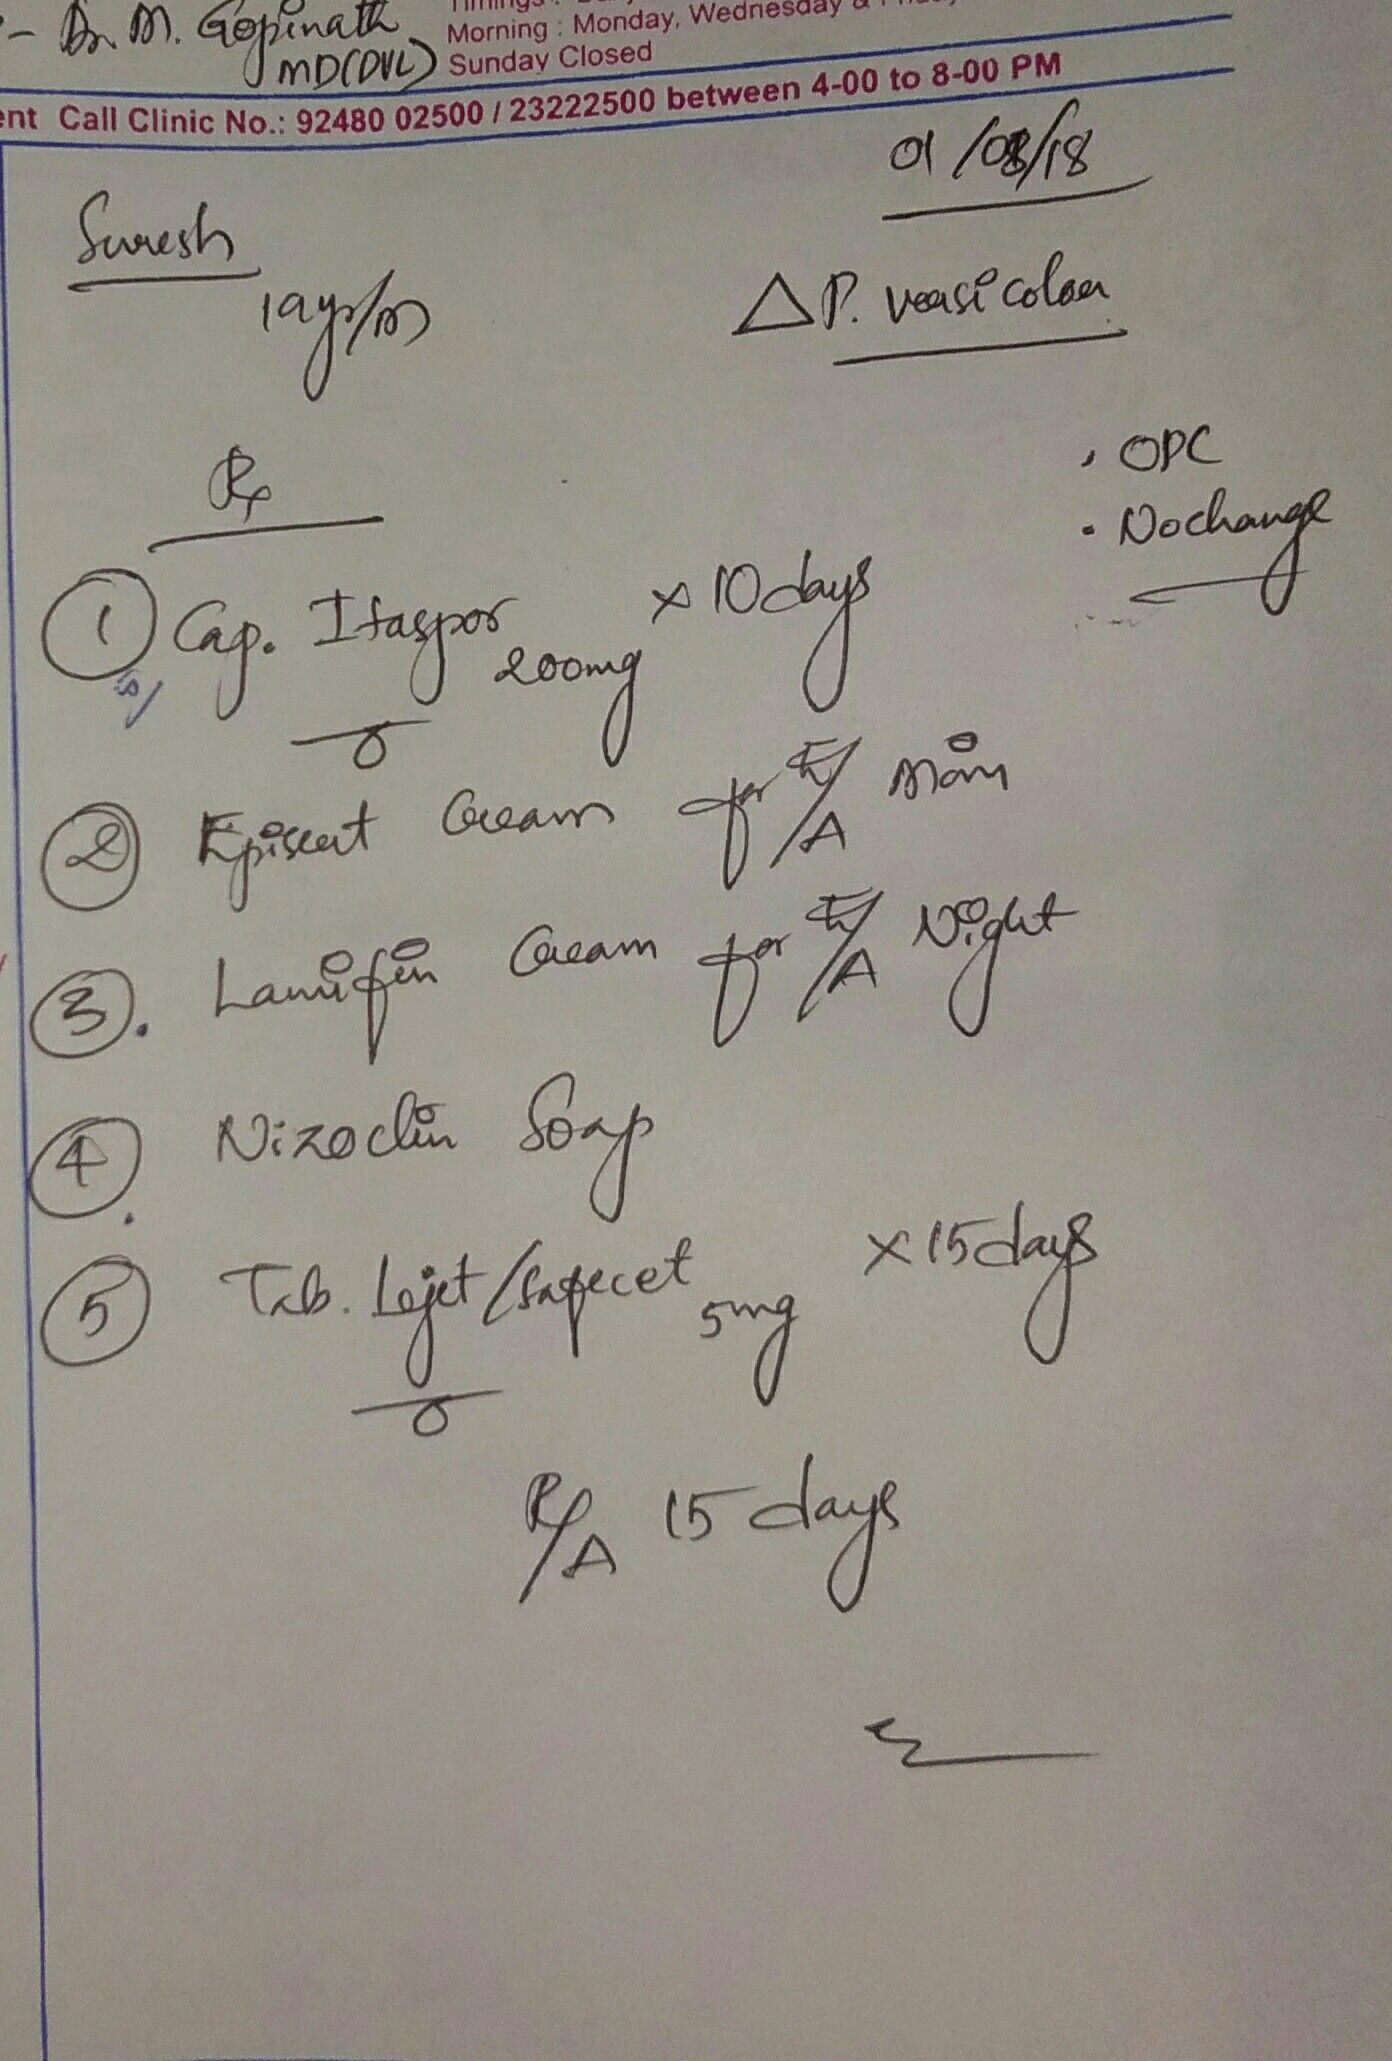 - Dr. M. Gopinath
MD(DVL)
Morning : Monday, Wednesday &
Sunday Closed
ent Call Clinic No.: 92480 02500 / 23222500 between 4-00 to 8-00 PM
01/08/18
Suresh
19yrs/M
△ P. versicolor
Rx
• OPC
• No change
① Cap. Itaspor 200mg x 10 days
② Episert Cream for E/A Morn
③. Lamifin Cream for E/A Night
④ Nizoclin Soap
⑤ Tab. Lejet/Safecet 5mg x 15 days
R/A 15 days